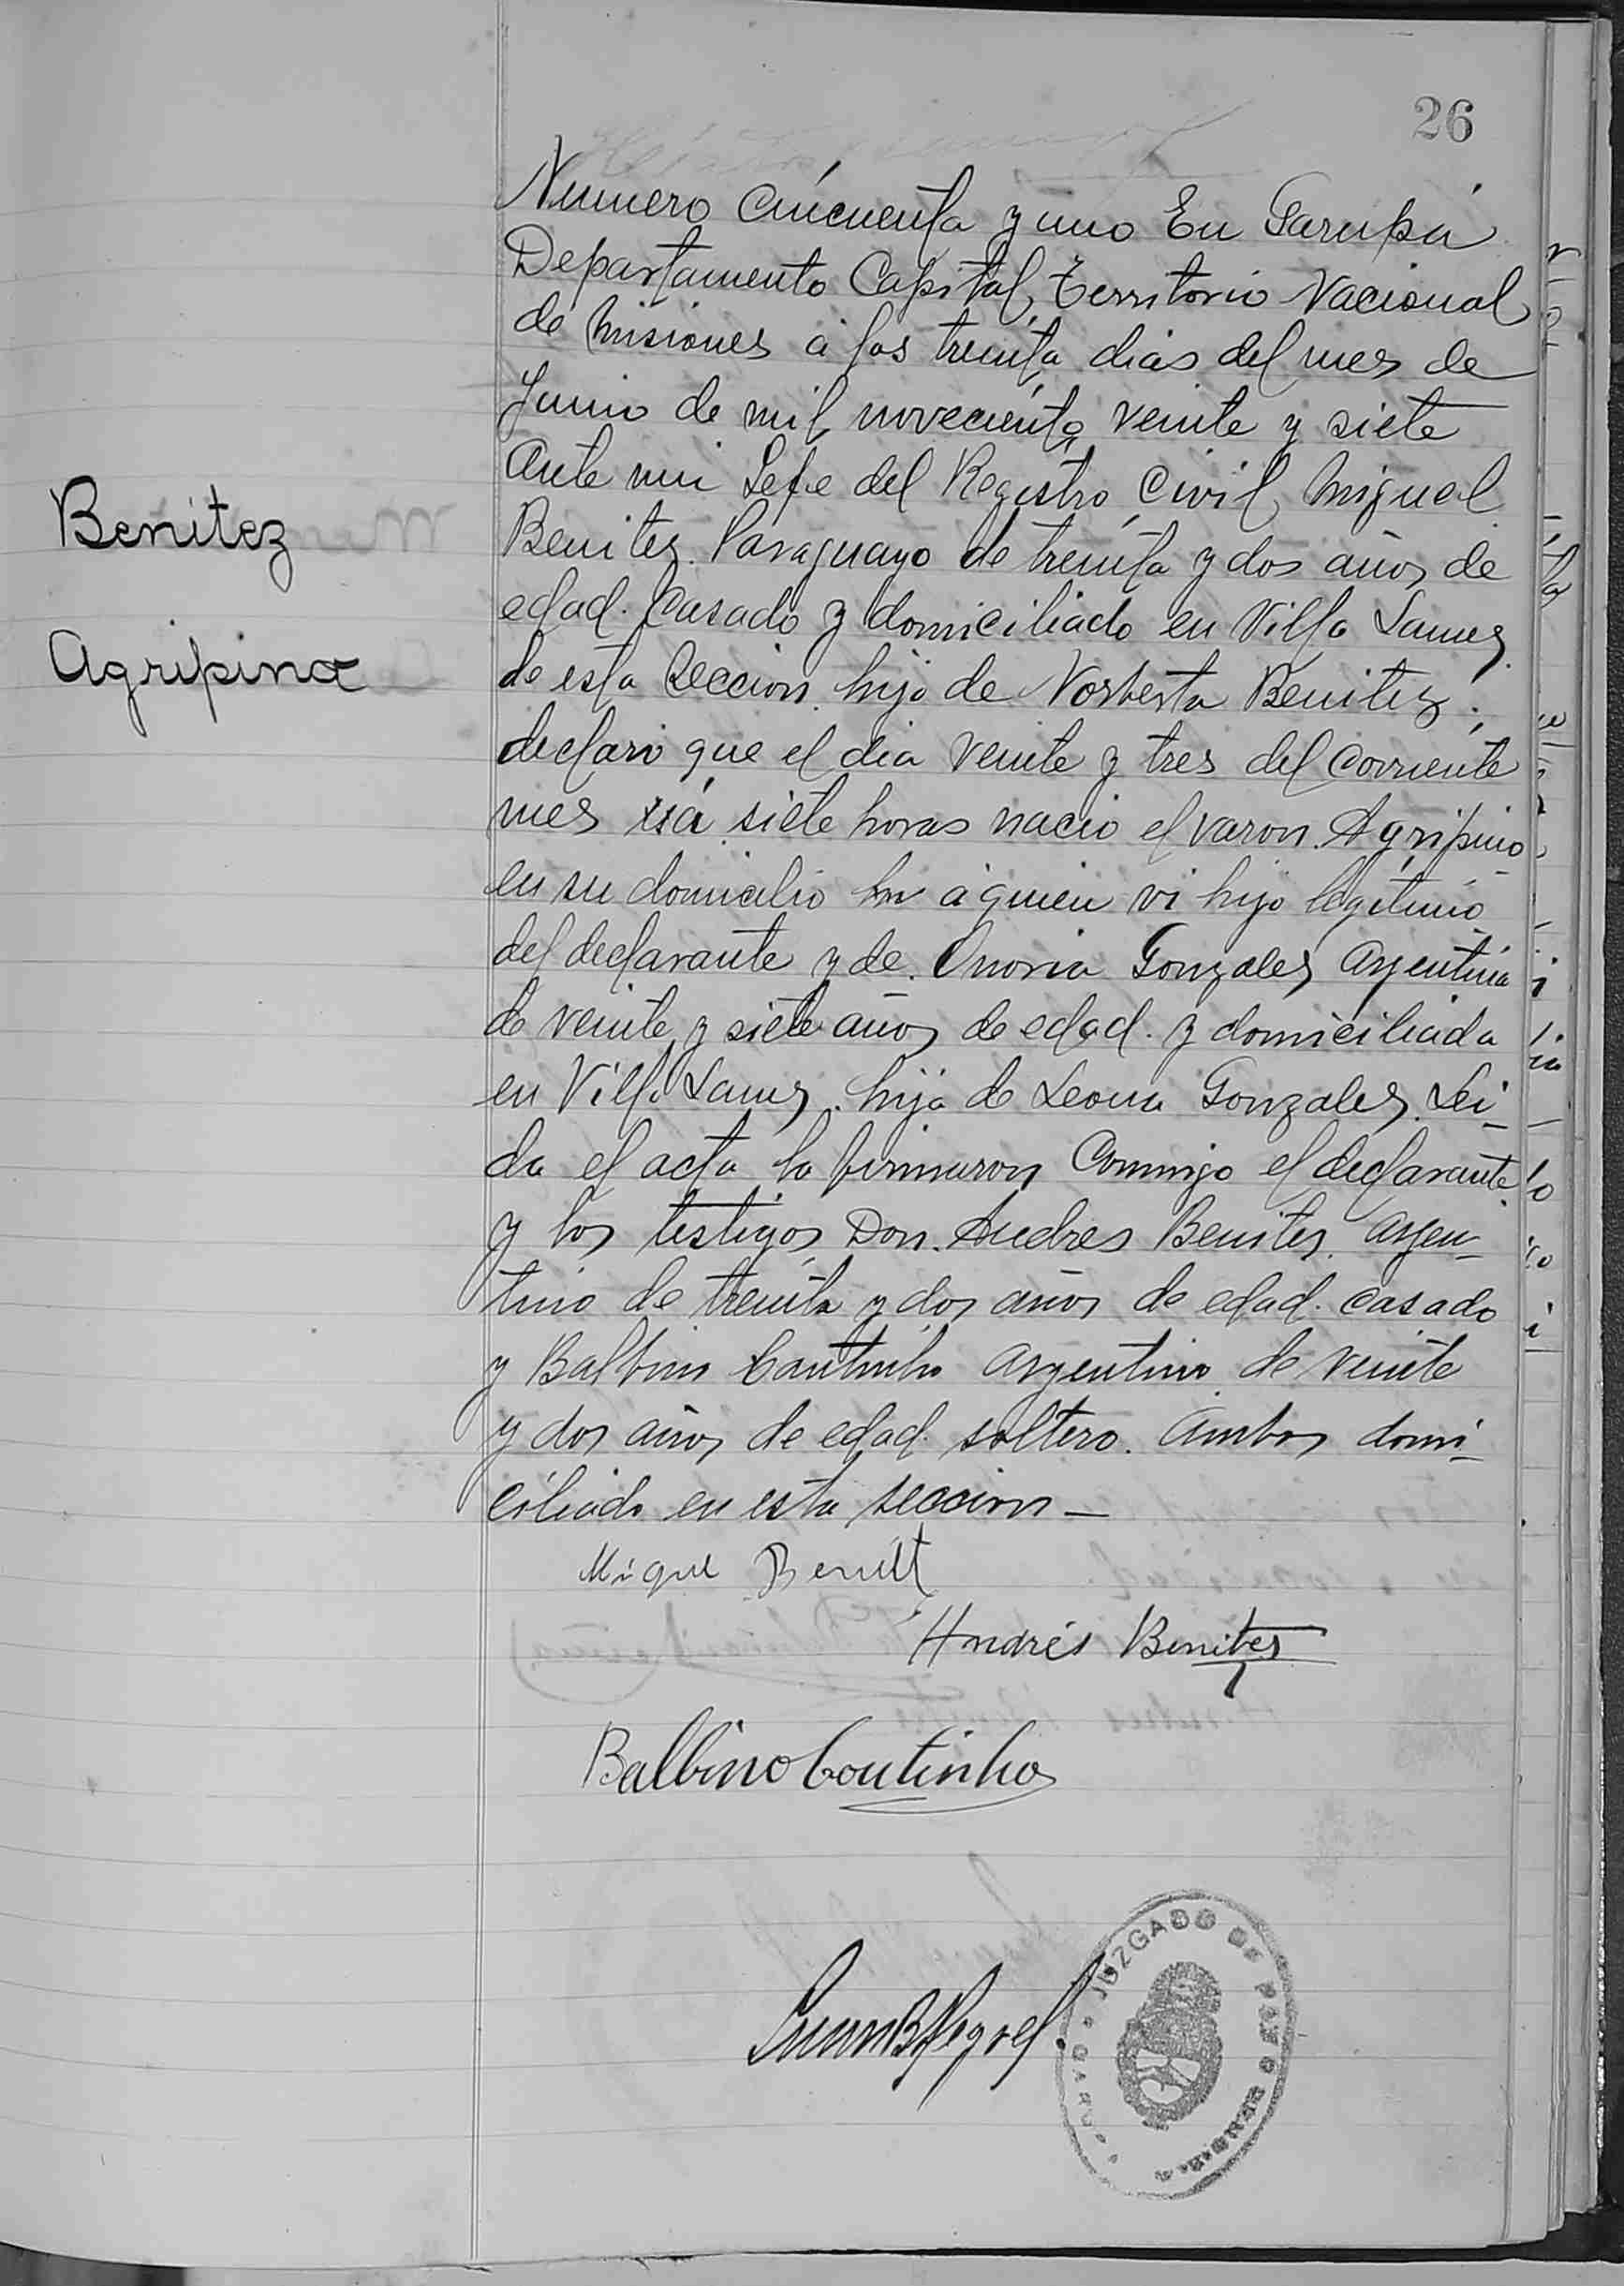 26
Numero Cincuenta y uno En Garupá
Departamento Capital, Territorio Nacional
de Misiones a los treinta dias del mes de
Junio de mil novecientos veinte y siete
Ante mi Jefe del Registro Civil, Miguel
Benitez. Paraguayo de treinta y dos años de
edad. Casado y domiciliado en Villa Lanus
de esta Seccion. hijo de Norberta Benitez;
declaró que el dia veinte y tres del corriente
mes a siete horas nacio el varon. Agripino
en su domicilio a quien vi hijo legitimo
del declarante y de. Onoria Gonzales, Argentina
de veinte y siete años de edad. y domiciliada
en Villa Lanus. hija de Leona Gonzales. Lei-
da el acta la firmaron Conmigo el declarante
y los testigos Don. Andres Benites. Argen-
tino de treinta y dos años de edad. casado
y Balbino Coutinho Argentino de veinte
y dos años de edad. soltero. Ambos domi-
ciliado en esta seccion —
Benitez
Agripino
Miguel Benitt
Andrés Benites
Balbino Coutinho
JUZGADO DE PAZ
GARUPA